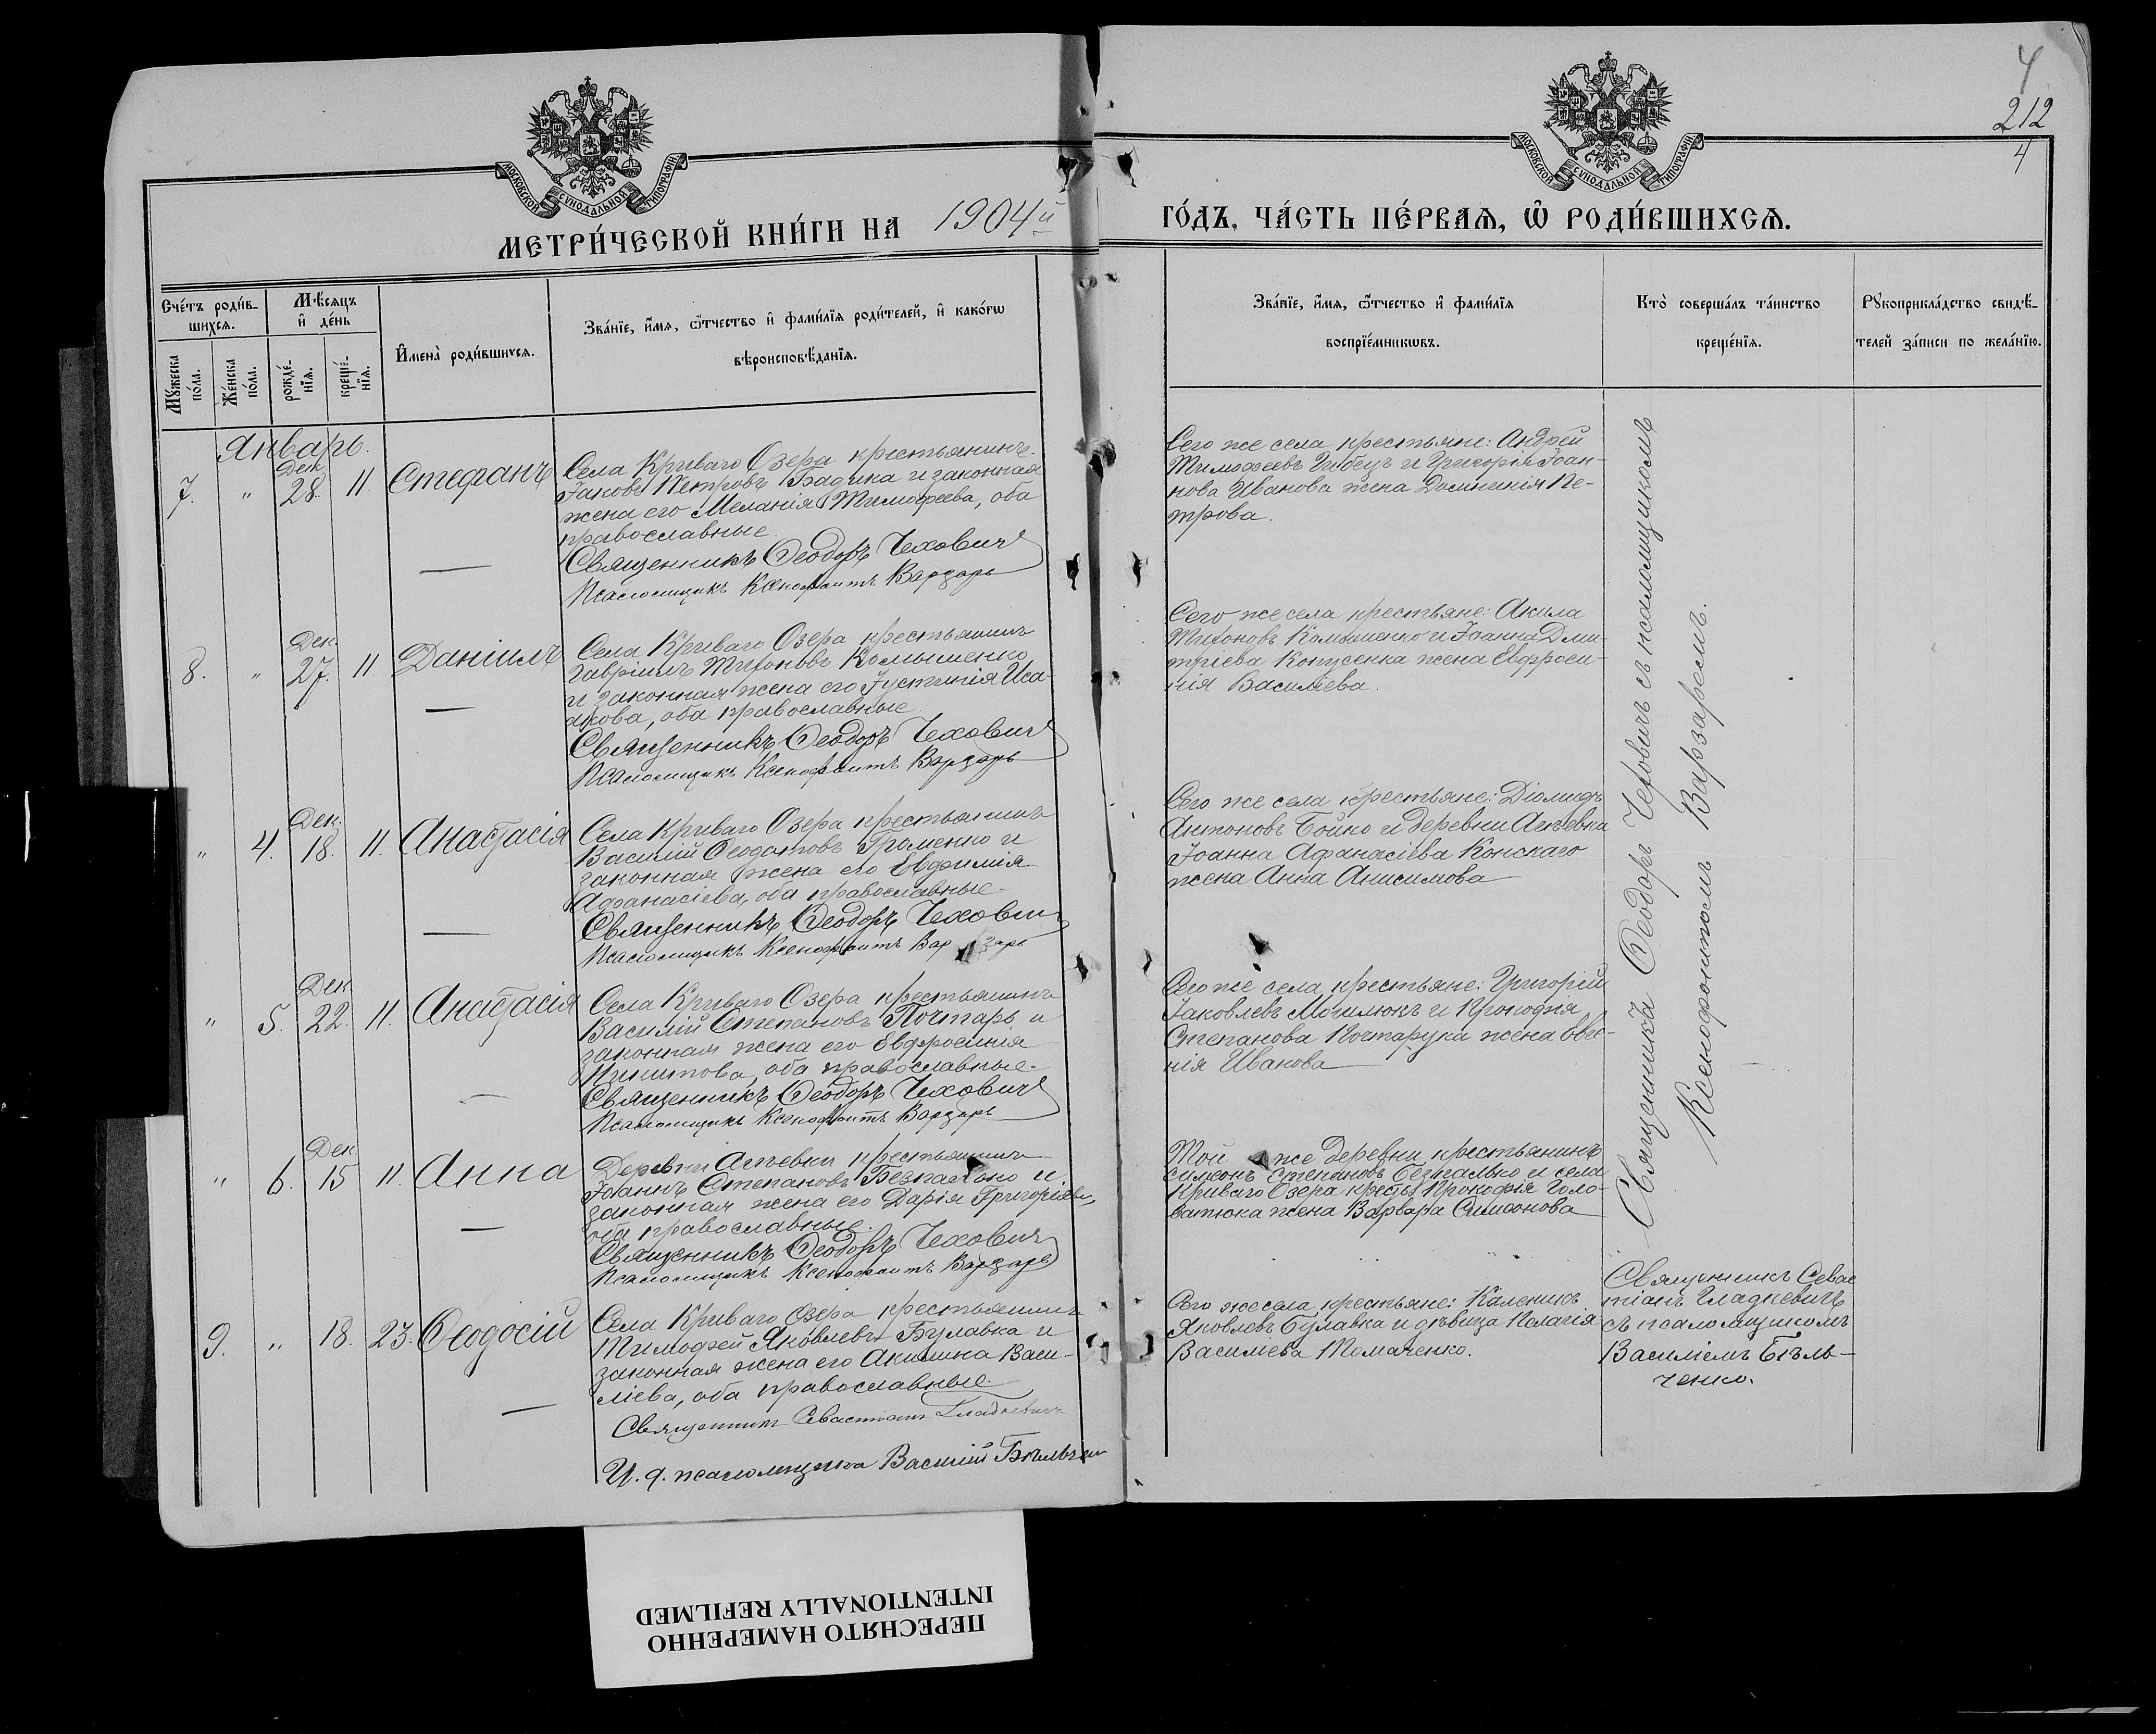 4
212
4
МОСКОВСКОЙ СѴНОДАЛЬНОЙ ТИПОГРАФІИ
МОСКОВСКОЙ СѴНОДАЛЬНОЙ ТИПОГРАФІИ
МЕТРИ́ЧЕСКОЙ КНИ́ГИ НА 1904й ГО́ДЪ, ЧА́СТЬ ПЕ́РВАѦ, Ѽ РОДИ́ВШИХСѦ.
Сче́тъ роди́в-
шихсѧ.
Мѣ́сѧцъ
и҆ де́нь
Мꙋ́жеска
по́ла.
Же́нска
по́ла.
рожде́-
нїѧ.
креще́-
нїѧ.
И҆мена̀ роди́вшихсѧ.
Зва́нїе, и҆́мѧ, ѻ҆́тчество и҆ фами́лїѧ роди́телей, и҆ како́гѡ
вѣроисповѣ́данїѧ.
Зва́нїе, и҆́мѧ, ѻ҆́тчество и҆ фами́лїѧ
воспрїе́мникѡвъ.
Кто̀ соверша́лъ та́инство
креще́нїѧ.
Рꙋкоприкла́дство свидѣ́-
телей за́писи по жела́нїю.
Январь.
7. " Дек. 28. 11. Стефанъ
Села Криваго Озера крестьянинъ
Іаковъ Петровъ Бадика и законная
жена его Меланія Тимофеева, оба
православные.
Священникъ Ѳеодоръ Чеховичъ
Псаломщикъ Ксенофонтъ Варзарь
Сего же села крестьяне: Андрей
Тимофеевъ Гибецъ и Григорія Іоан-
нова Иванова жена Домникія Пе-
трова.
8. " Дек. 27. 11 Даніилъ
Села Криваго Озера крестьянинъ
Гавріилъ Тихоновъ Комышенко
и законная жена его Іустинія Иса-
акова, оба православные.
Священникъ Ѳеодоръ Чеховичъ
Псаломщикъ Ксенофонтъ Варзарь
Сего же села крестьяне: Акила
Тихоновъ Комышенко и Іоанна Дми-
тріева Копусенка жена Евфроси-
нія Василіева.
" 4. Дек. 18. 11. Анастасія
Села Криваго Озера крестьянинъ
Василій Ѳеодотовъ Громенко и
законная жена его Евфимія
Афанасіева, оба православные.
Священникъ Ѳеодоръ Чехович
Псаломщикъ Ксенофонтъ Варзарь
Сего же села крестьяне: Діомидъ
Антоновъ Бойко и деревни Агѣевки
Іоанна Афанасіева Конскаго
жена Анна Анисимова
" 5. Дек 22. 11. Анастасія
Села Криваго Озера крестьянинъ
Василій Степановъ Почтарь и
законная жена его Евфросинія
Никитова, оба православные.
Священникъ Ѳеодоръ Чеховичъ
Псаломщикъ Ксенофонтъ Варзарь
Сего же села крестьяне: Григорій
Іаковлевъ Могилюкъ и
Степанова Почтарука жена Евге-
нія Иванова
" 6. Дек 15 11. Анна
Деревни Агѣевки крестьянинъ
Іоаннъ Степановъ Безпалько и
законная жена его Дарія Григоріева,
оба православные.
Священникъ Ѳеодоръ Чеховичъ
Псаломщикъ Ксенофонтъ Варзарь
Той же деревни крестьянинъ
Симеонъ Степановъ Безпалько и села
Криваго Озера крест. Прокофія Голо-
ватюка жена Варвара Симеонова
Священникъ Ѳеодоръ Чеховичъ съ псаломщикомъ
Ксенофонтомъ Варзаремъ.
9. " 18. 23. Ѳеодосій
Села Криваго Озера крестьянинъ
Тимофей Яковлевъ Булавка и
законная жена его Акилина Васи-
ліева, оба православные.
Священникъ Севастіанъ Гладкевичъ
И. д. псаломщика Василій Бѣльченко
Сего же села крестьяне: Каленикъ
Яковлевъ Булавка и дѣвица Пелагія
Василіева Томаченко.
Священникъ Севас
тіанъ Гладкевичъ
съ псаломщикомъ
Василіемъ Бѣль-
ченко.
ПЕРЕСНЯТО НАМЕРЕННО
INTENTIONALLY REFILMED